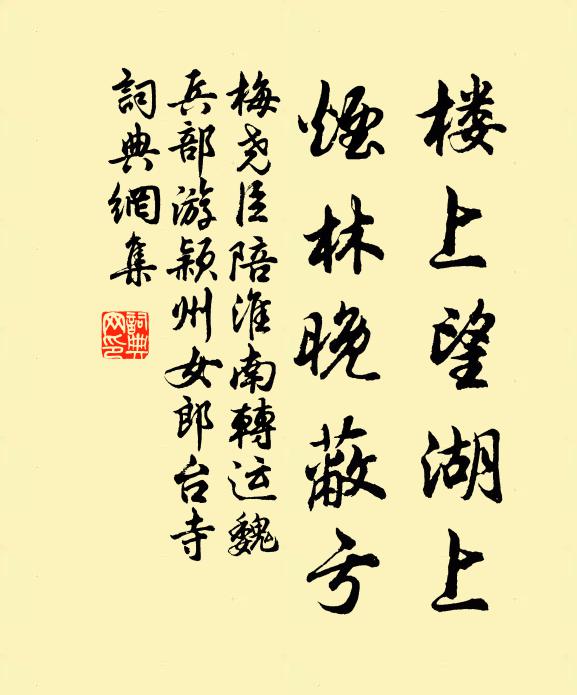 楼上望湖上
烟林晚蔽亏
梅尧臣陪淮南轉运魏
兵部游颍州女郎台寺
詞典網集
詞典
网印